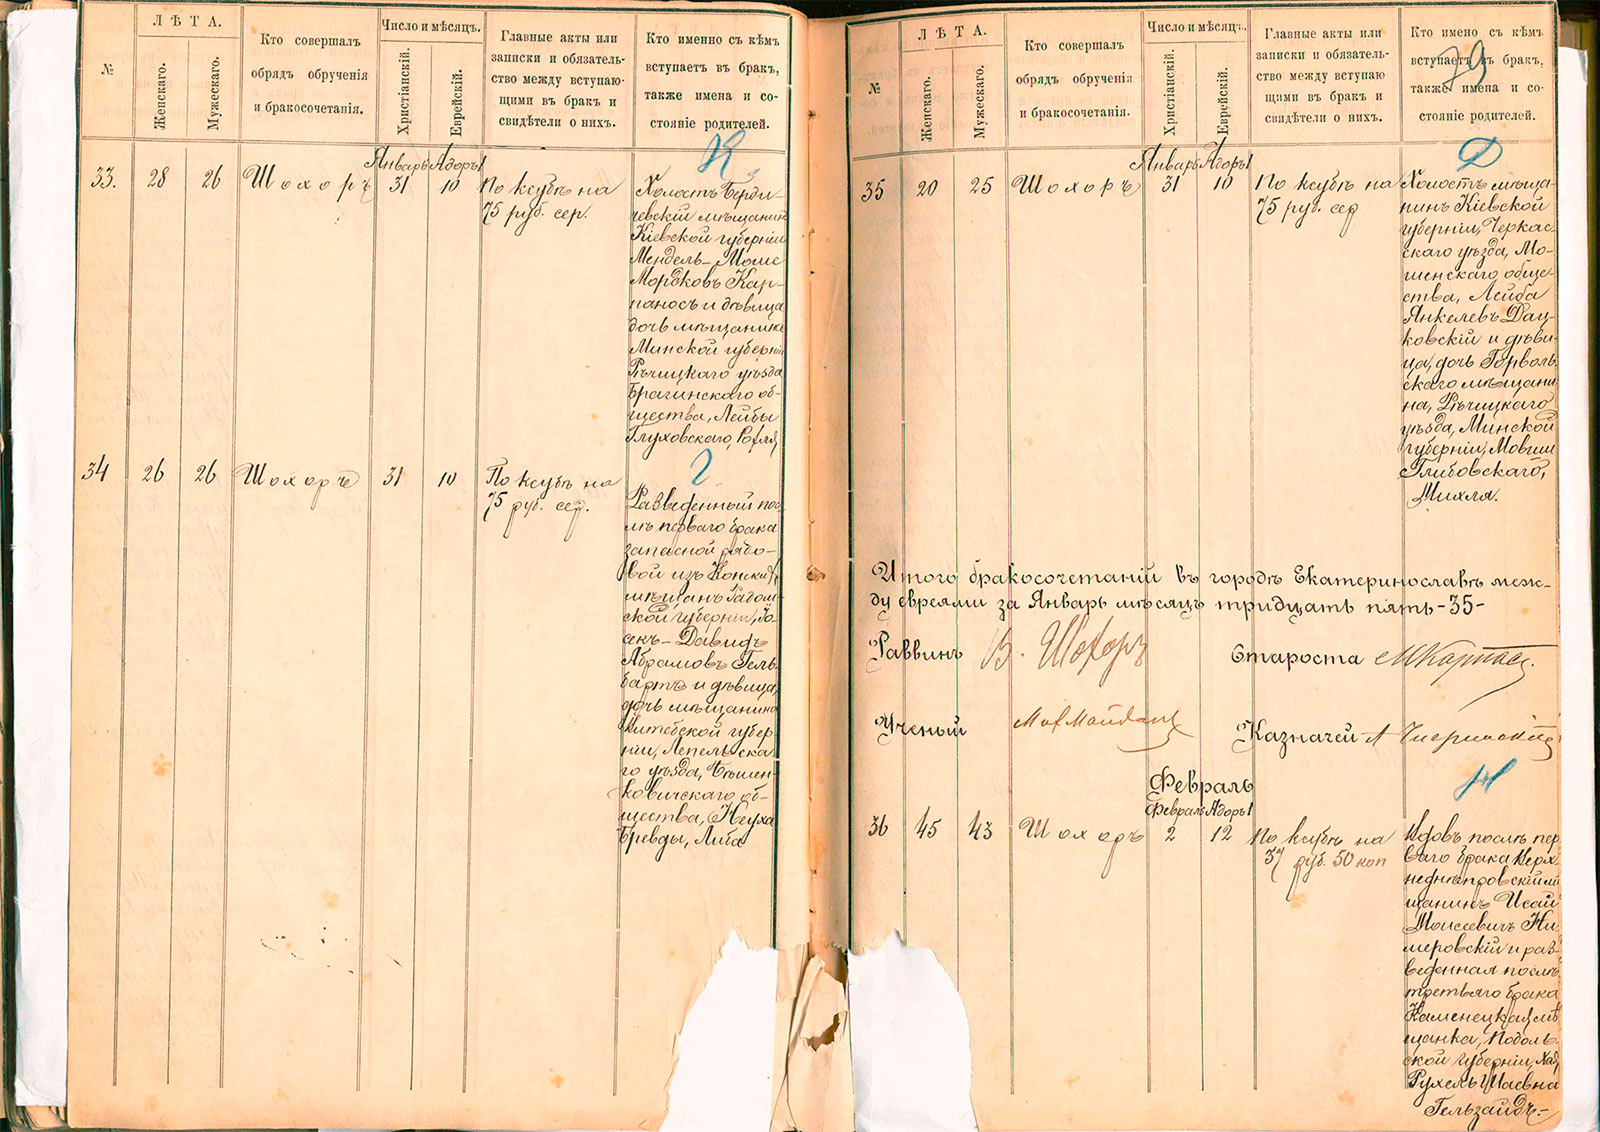 №
ЛѢТА.
Женскаго.
Мужескаго.
Кто совершалъ
обрядъ обрученія
и бракосочетанія.
Число и мѣсяцъ.
Христіанскій.
Еврейскій.
Главные акты или
записки и обязатель-
ство между вступаю-
щими въ бракъ и
свидѣтели о нихъ.
Кто именно съ кѣмъ
вступаетъ въ бракъ,
также имена и со-
стояніе родителей.
К
33. 28 26 Шохоръ
Январь Адоръ 1
31 10
По ксубѣ на
75 руб. сер.
Холостъ Берди-
чевскій мѣщанинъ
Кіевской губерніи
Мендель-Моше
Мордковъ Кар-
паносъ и дѣвица
дочь мѣщанина
Минской губерніи
Рѣчицкаго уѣзда
Брагинскаго об-
щества, Лейбы
Глуховскаго, Рохля
Г
34 26 26 Шохоръ 31 10
По ксубѣ на
75 руб. сер.
Разведенный пос-
лѣ перваго брака
запасной рядо-
вой изъ
мѣщанъ Радом-
ской губерніи, Іо-
секъ-Давидъ
Абрамовъ Гель-
бартъ и дѣвица,
дочь мѣщанина
Витебской губер-
ніи, Лепельска-
го уѣзда, Бѣшен-
ковичскаго об-
щества,
Бревды, Либа
79
№
ЛѢТА.
Женскаго.
Мужескаго.
Кто совершалъ
обрядъ обрученія
и бракосочетанія.
Число и мѣсяцъ.
Христіанскій.
Еврейскій.
Главные акты или
записки и обязатель-
ство между вступаю
щими въ бракъ и
свидѣтели о нихъ.
Кто имено съ кѣмъ
вступаетъ въ бракъ,
также имена и со-
стояніе родителей.
Д
35 20 25 Шохоръ
Январь Адоръ 1
31 10
По ксубѣ на
75 руб. сер
Холостъ мѣща-
нинъ Кіевской
губерніи, Черкас-
скаго уѣзда, Мо-
шенскаго обще-
ства, Лейба
Янкелевъ Дац-
ковскій и дѣви-
ца, дочь Горволь-
скаго мѣщани-
на, Рѣчицкаго
уѣзда, Минской
губерніи, Мовши
Глибовскаго,
Михля.
Итого бракосочетаній въ городѣ Екатеринославѣ меж-
ду евреями за Январь мѣсяцъ тридцать пять -35-
Раввинъ В. Шохоръ Староста М Карпас
Ученый Казначей
Февраль
Н
Февраль Адоръ 1
36 45 43 Шохоръ 2 12
По ксубѣ на
37 руб. 50 коп
Вдовъ послѣ пер
ваго брака Верх-
неднѣпровскій мѣ
щанинъ Исай
Моисеевичъ Не-
меровскій и раз-
веденная послѣ
третьяго брака
Каменецкая мѣ
щанка, Подоль-
ской губерніи,
Рухель Шаевна
Гельзайдъ.-